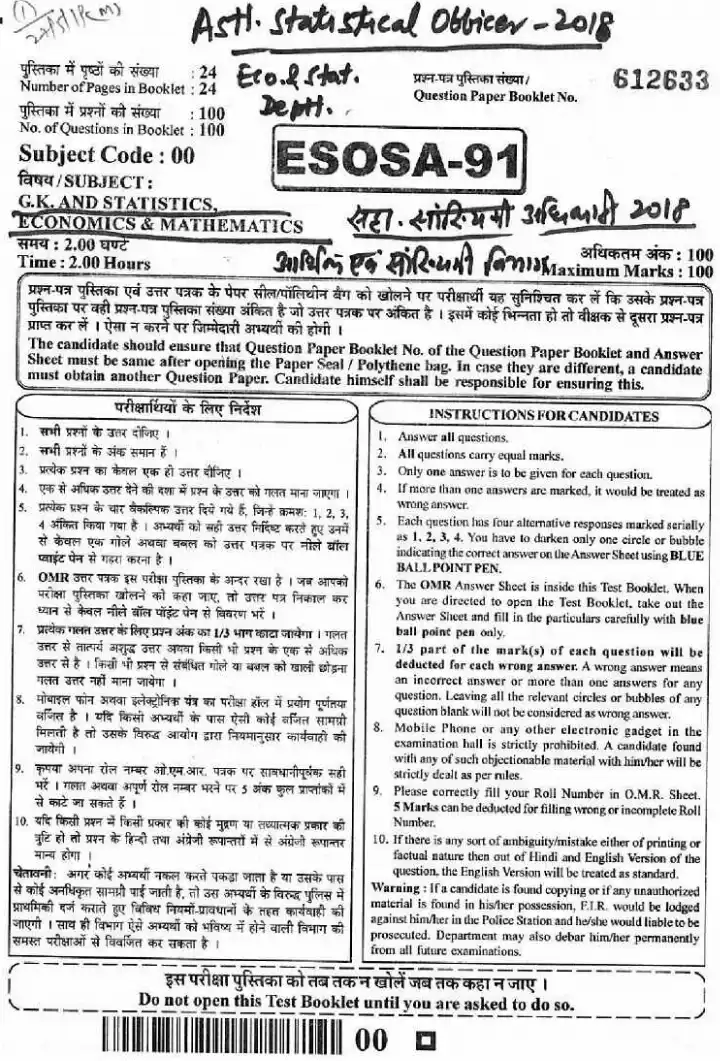 Astt. Statistical Officer - 2018
पुस्तिका में पृष्ठों की संख्या : 24
Number of Pages in Booklet : 24
पुस्तिका में प्रश्नों की संख्या : 100
No. of Questions in Booklet : 100
Eco. & Stat.
Deptt.
प्रश्न-पत्र पुस्तिका संख्या /
Question Paper Booklet No.
612633
Subject Code : 00
ESOSA-91
विषय / SUBJECT :
G.K. AND STATISTICS,
ECONOMICS & MATHEMATICS
सहा. सांख्यिकी अधिकारी 2018
आर्थिक एवं सांख्यिकी विभाग
समय : 2.00 घण्टे
Time : 2.00 Hours
अधिकतम अंक : 100
Maximum Marks : 100
प्रश्न-पत्र पुस्तिका एवं उत्तर पत्रक के पेपर सील/पॉलिथीन बैग को खोलने पर परीक्षार्थी यह सुनिश्चित कर लें कि उसके प्रश्न-पत्र
पुस्तिका पर वही प्रश्न-पत्र पुस्तिका संख्या अंकित है जो उत्तर पत्रक पर अंकित है । इसमें कोई भिन्नता हो तो वीक्षक से दूसरा प्रश्न-पत्र
प्राप्त कर लें । ऐसा न करने पर जिम्मेदारी अभ्यर्थी की होगी ।
The candidate should ensure that Question Paper Booklet No. of the Question Paper Booklet and Answer
Sheet must be same after opening the Paper Seal / Polythene bag. In case they are different, a candidate
must obtain another Question Paper. Candidate himself shall be responsible for ensuring this.
परीक्षार्थियों के लिए निर्देश
1. सभी प्रश्नों के उत्तर दीजिए ।
2. सभी प्रश्नों के अंक समान हैं ।
3. प्रत्येक प्रश्न का केवल एक ही उत्तर दीजिए ।
4. एक से अधिक उत्तर देने की दशा में प्रश्न के उत्तर को गलत माना जाएगा ।
5. प्रत्येक प्रश्न के चार वैकल्पिक उत्तर दिये गये हैं, जिन्हें क्रमशः 1, 2, 3,
4 अंकित किया गया है । अभ्यर्थी को सही उत्तर निर्दिष्ट करते हुए उनमें
से केवल एक गोले अथवा बबल को उत्तर पत्रक पर नीले बॉल
प्वाइंट पेन से गहरा करना है ।
6. OMR उत्तर पत्रक इस परीक्षा पुस्तिका के अन्दर रखा है । जब आपको
परीक्षा पुस्तिका खोलने को कहा जाए, तो उत्तर पत्र निकाल कर
ध्यान से केवल नीले बॉल पॉइंट पेन से विवरण भरें ।
7. प्रत्येक गलत उत्तर के लिए प्रश्न अंक का 1/3 भाग काटा जायेगा । गलत
उत्तर से तात्पर्य अशुद्ध उत्तर अथवा किसी भी प्रश्न के एक से अधिक
उत्तर से है । किसी भी प्रश्न से संबंधित गोले या बबल को खाली छोड़ना
गलत उत्तर नहीं माना जायेगा ।
8. मोबाइल फोन अथवा इलेक्ट्रोनिक यंत्र का परीक्षा हॉल में प्रयोग पूर्णतया
वर्जित है । यदि किसी अभ्यर्थी के पास ऐसी कोई वर्जित सामग्री
मिलती है तो उसके विरुद्ध आयोग द्वारा नियमानुसार कार्यवाही की
जायेगी ।
9. कृपया अपना रोल नम्बर ओ.एम.आर. पत्रक पर सावधानीपूर्वक सही
भरें । गलत अथवा अपूर्ण रोल नम्बर भरने पर 5 अंक कुल प्राप्तांकों में
से काटे जा सकते हैं ।
10. यदि किसी प्रश्न में किसी प्रकार की कोई मुद्रण या तथ्यात्मक प्रकार की
त्रुटि हो तो प्रश्न के हिन्दी तथा अंग्रेजी रूपान्तरों में से अंग्रेजी रूपान्तर
मान्य होगा ।
चेतावनी : अगर कोई अभ्यर्थी नकल करते पकड़ा जाता है या उसके पास
से कोई अनधिकृत सामग्री पाई जाती है, तो उस अभ्यर्थी के विरुद्ध पुलिस में
प्राथमिकी दर्ज कराते हुए विविध नियमों-प्रावधानों के तहत कार्यवाही की
जाएगी । साथ ही विभाग ऐसे अभ्यर्थी को भविष्य में होने वाली विभाग की
समस्त परीक्षाओं से विवर्जित कर सकता है ।
INSTRUCTIONS FOR CANDIDATES
1. Answer all questions.
2. All questions carry equal marks.
3. Only one answer is to be given for each question.
4. If more than one answers are marked, it would be treated as
wrong answer.
5. Each question has four alternative responses marked serially
as 1, 2, 3, 4. You have to darken only one circle or bubble
indicating the correct answer on the Answer Sheet using BLUE
BALL POINT PEN.
6. The OMR Answer Sheet is inside this Test Booklet. When
you are directed to open the Test Booklet, take out the
Answer Sheet and fill in the particulars carefully with blue
ball point pen only.
7. 1/3 part of the mark(s) of each question will be
deducted for each wrong answer. A wrong answer means
an incorrect answer or more than one answers for any
question. Leaving all the relevant circles or bubbles of any
question blank will not be considered as wrong answer.
8. Mobile Phone or any other electronic gadget in the
examination hall is strictly prohibited. A candidate found
with any of such objectionable material with him/her will be
strictly dealt as per rules.
9. Please correctly fill your Roll Number in O.M.R. Sheet.
5 Marks can be deducted for filling wrong or incomplete Roll
Number.
10. If there is any sort of ambiguity/mistake either of printing or
factual nature then out of Hindi and English Version of the
question, the English Version will be treated as standard.
Warning : If a candidate is found copying or if any unauthorized
material is found in his/her possession, F.I.R. would be lodged
against him/her in the Police Station and he/she would liable to be
prosecuted. Department may also debar him/her permanently
from all future examinations.
इस परीक्षा पुस्तिका को तब तक न खोलें जब तक कहा न जाए ।
Do not open this Test Booklet until you are asked to do so.
00